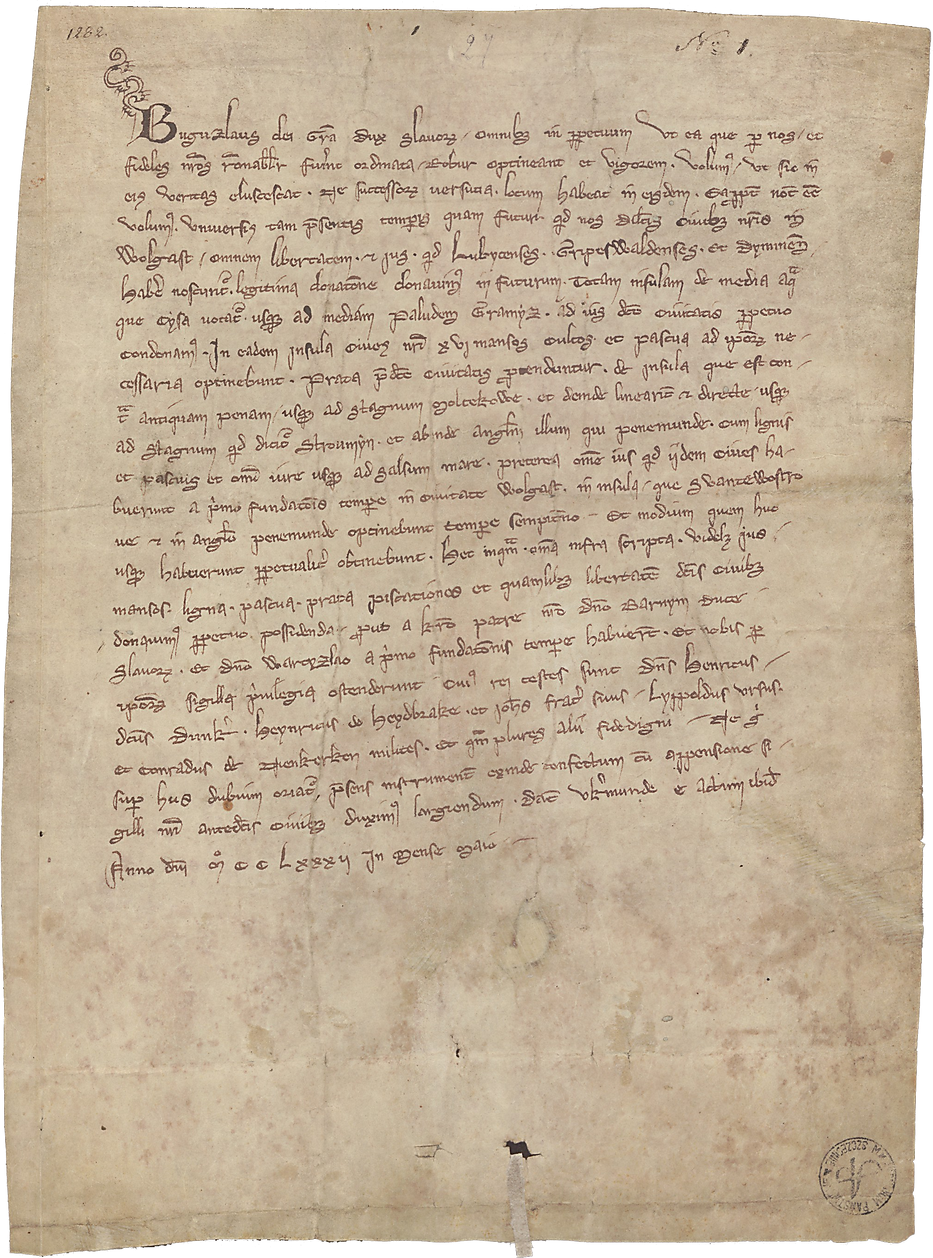 1282.
27
No 1.
Buguzlaus dei gra dux slavorz / Omnibz in ppetuum Vt ea que p nos / et
fideles nros ronabilr fuint ordinata / Robur optineant et vigorem . Volum9 / vt sic in
eis veritas eluscescat . Ne successorz versutia . locum habeat in eisdem . not ee
volum9 . Vniversis tam psentis tempis quam futuri qd nos dilcis Civibz nris in
Wolgast / omnem libertatem . et jus . qd Lubycenses . Gripeswaldenses . et Dyminen
habe noscunt . legitima donatone donavim9 in futurum . Totam insulam de media aqa
que Cysa vocat . vsqz ad mediam paludem Gramyz . ad vsus dcte Civitatis ppetuo
Condonam9 . In eadem insula Cives nri xvi mansos Cultos . et pascua ad iporz ne-
cessaria optinebunt . prata pdcte Civitatis ptenduntur . de insula que est con-
tra antiquam penam / vsqz ad stagnum Moltekowe . et deinde linearit et directe vsqz
ad stagnum qd dicio Stroumyn . et abinde anglm illum qui penemunde . Cum lignis
et pascuis et omi iure vsqz ad salsum mare . preterea ome ius qd ijdem Cives ha-
buerunt a pmo fundatois tempe in Civitate Wolgast . in insula / que Swantewostro
ue et in anglo penemunde optinebunt tempe sempitno – Et modium quem huc
vsqz habuerunt ppetualit obtinebunt . Hec inqm . oma infra scripta . videlz jus /
mansos . ligna . pascua . prata piscationes et quamlibz libertate dcis Civibz
donauim9 ppetuo . possidenda . put a kro patre nro dno Barnym duce
Slavorz . et dno Wartyzlao a pmo fundatonis tempe habuert . Et nobis p
iporz sigilla pulegia ostenderunt Cui9 rei testes sunt dns Henricus /
dcus Dunkr . Heynricus de Heydbrake . et iohs frat suus . Lyppoldus vrsus .
et Conradus de Nienkerken milites . et qm plures alii fidedigni – Ne g
sup hiis dubium oriat . psens instrument exinde confectum cu appensione si-
gilli nri antedcis Civibz duxim9 largiendum . dat vkrmunde et actum ibid
Anno dni Mo C C Lxxxii In Mense Maio –